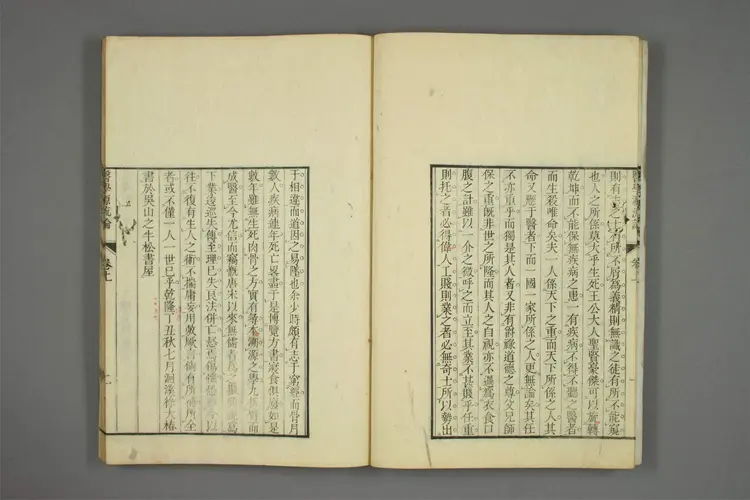 則有志之士有所不屑為義精則無識之徒有所不能窺
也人之所係莫大乎生死王公大人聖賢豪傑可以旋轉
乾坤而不能保無疾病之患一有疾病不得不聽之醫者
而生殺唯命矣夫一人係天下之重而天下所係之人其
命又懸于醫者下而一國一家所係之人更無論矣其任
不亦重乎而獨是其人者又非有爵祿道德之尊父兄師
保之重既非世之所隆而其人之自視亦不過為衣食口
腹之計雖以一介之微呼之而立至其業不甚賤乎任重
則托之者必得偉人工賤則業之者必無奇士所以勢出
于相違而道因之易墜也余少時頗有志于窮經而骨月
數人疾病連年死亡畧盡于是博覽方書寢食俱廢如是
數年雖無生死肉骨之方實有尋本溯源之學九折臂而
成醫至今尤信而竊慨唐宋以來無儒者為之振興視為
下業逡巡失傳至理已失良法併亡惄焉傷懷恐自今以
往不復有生人之術不揣庸妄用敷厥言倘有所補所全
者或不僅一人一世已乎乾隆丁丑秋七月洄溪徐大椿
書於吳山之半松書屋
醫學源流論 卷上